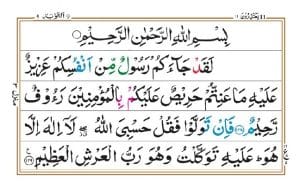 بِسْمِ اللّٰهِ الرَّحْمٰنِ الرَّحِيْمِ
لَقَدْ جَآءَكُمْ رَسُوْلٌ مِّنْ اَنْفُسِكُمْ عَزِيْزٌ
عَلَيْهِ مَا عَنِتُّمْ حَرِيْصٌ عَلَيْكُمْ بِالْمُؤْمِنِيْنَ رَءُوْفٌ
رَّحِيْمٌ ﴿۱۲۸﴾ فَاِنْ تَوَلَّوْا فَقُلْ حَسْبِيَ اللّٰهُ لَآ اِلٰهَ اِلَّا
هُوَ عَلَيْهِ تَوَكَّلْتُ وَهُوَ رَبُّ الْعَرْشِ الْعَظِيْمِ ﴿۱۲۹﴾